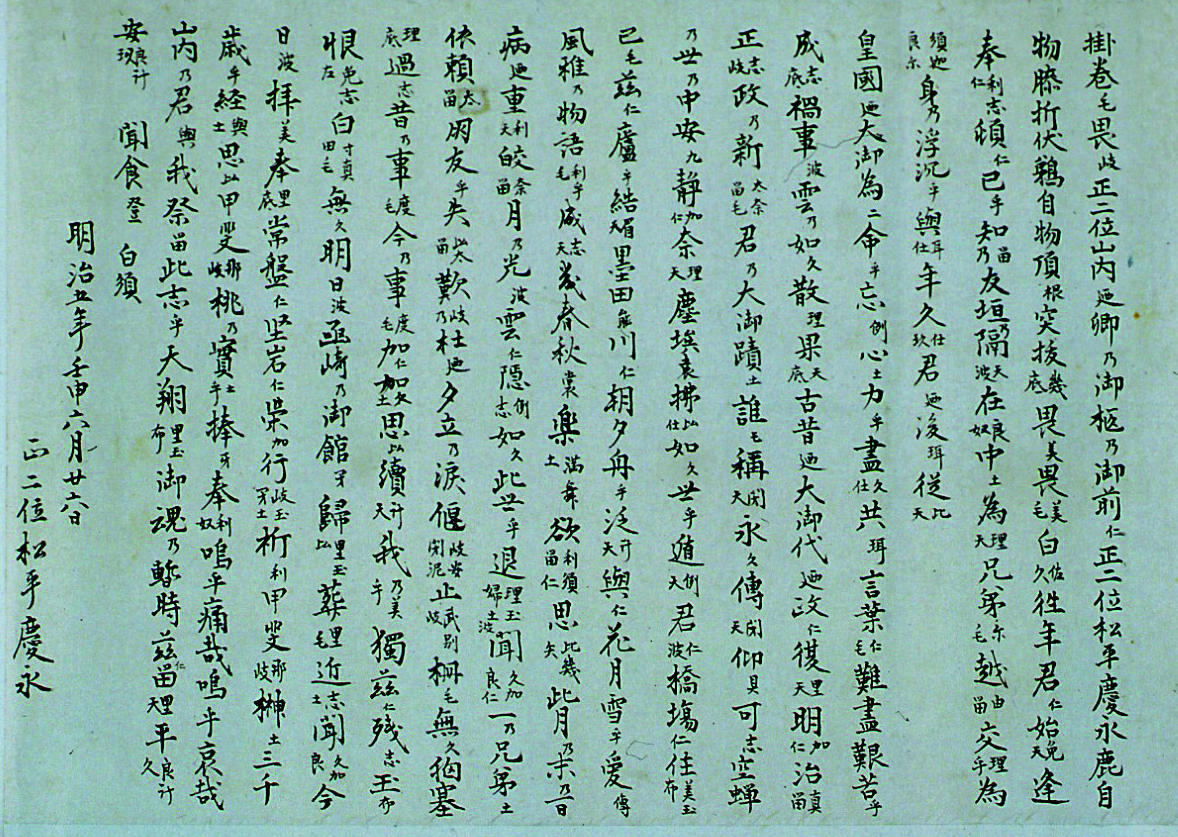 掛巻毛畏岐正二位山内廼卿乃御柩乃御前仁正二位松平慶永鹿自
物膝折伏鵜自物頂根突抜幾底畏美畏美毛白佐久徃年君仁始免天逢
奉利志仁頓仁己乎知留乃友垣乃隔天波在良奴中土為理天兄弟尓毛越由留交理乎為
須迦良尓身乃浮沉乎與耳仕年久仕玖君廼後珥従比天
皇國廼大御為二命乎忘例心土力乎盡久仕共珥言葉仁毛難盡艱苦乎
成志底禍事波雲乃如久散理果天底古昔廼大御代廼政仁復里天明加仁治真留
正志岐政乃新太奈留毛君乃大御蹟土誰毛稱閇天永久傳閇天仰具可志空蝉
乃世乃中安九静加仁奈理天塵埃袁拂比仕如久世乎遁例天君仁波橋塲仁住美玉布
己毛茲仁廬乎結天眉墨田廼川仁朝夕舟乎泛計天與仁花月雪乎愛傳
風雅乃物語利乎毛成志天幾春秋裳楽土満舞欲利須留仁思比幾矢此月乃末乃一日
病廼重利天皎奈留月乃光波雲仁隠例志如久此世乎退理玉婦土波聞久加良仁一乃兄弟土
依頼太留朋友乎失比太留歎岐杜廼夕立乃涙偃岐安閇泥止武別岐柵毛無久狛塞
理底過志昔乃事度毛今乃事度毛加仁加久土思比續計天我乃美乎獨茲仁残志玉布
恨免志左白寸真田毛無久明日波函崎乃御館牙歸里玉比葬里毛近志土聞久加良今
日波拝美奉里底常盤仁堅岩仁栄加行岐玉牙土祈利甲斐那岐榊土三千
歳乎経與土思比甲斐那岐桃乃實土乎捧牙奉利奴嗚乎痛哉嗚乎哀哉
山内乃君與我祭留此志乎天翔里玉布御魂乃暫時茲仁留里天平良計久
安良計玖聞食登白須
明治五年壬申六月廿六日
正二位松平慶永